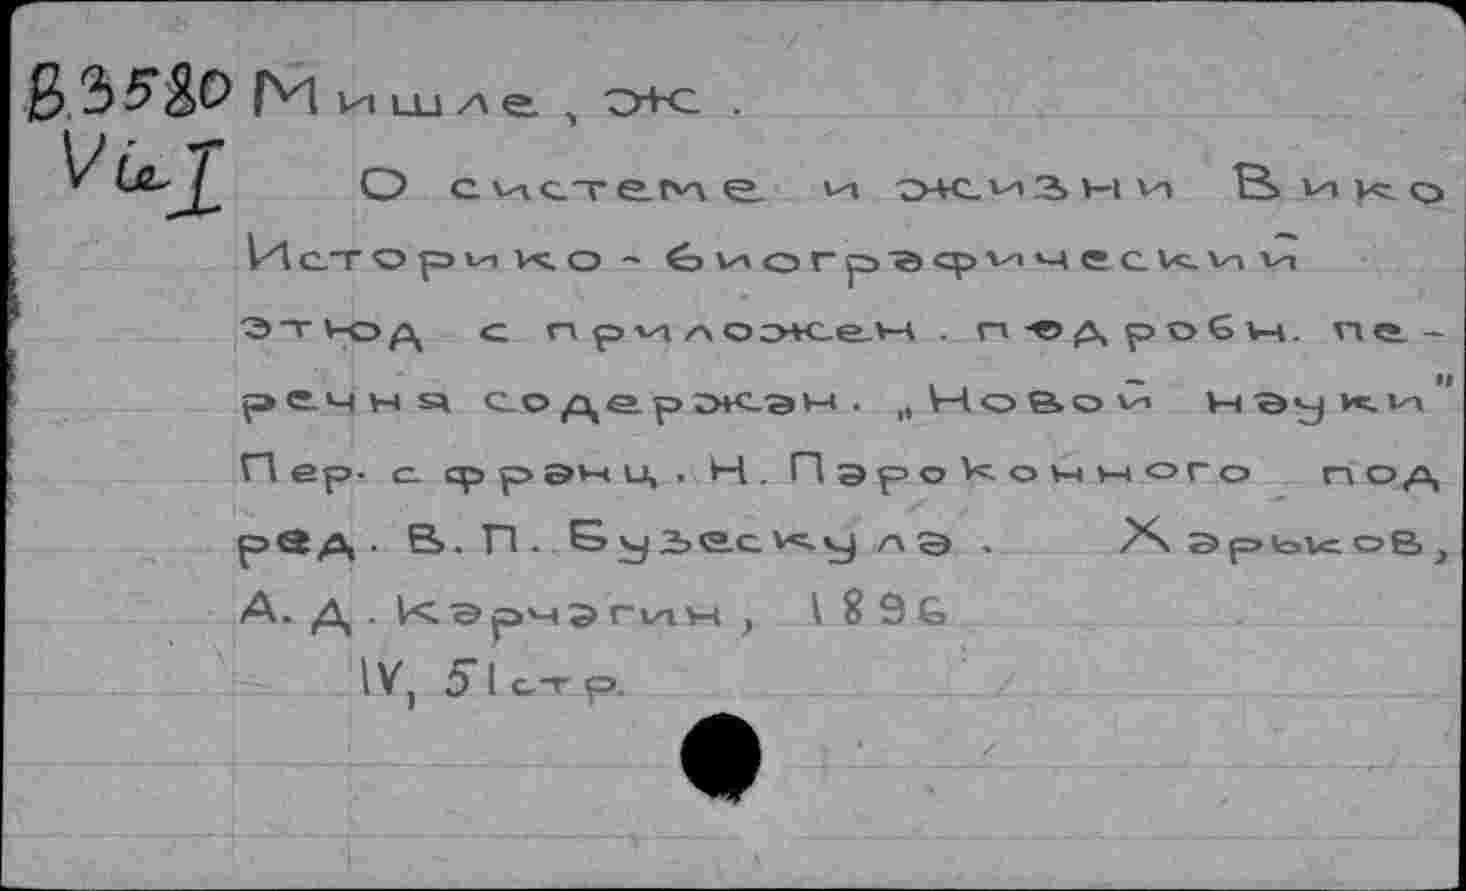 B.3580 Мишле, Ж.
Vie I О системе и жизни Вико
Историко-биографический
этюд с приложен. подробн. пе-
речня содержан. „Новой науки"
Пер. с франц. Н. Пароконного под
ред. В.П. Бузескула. Харьков,
А.Д. Карчагин, 1896
IV, 51стр.